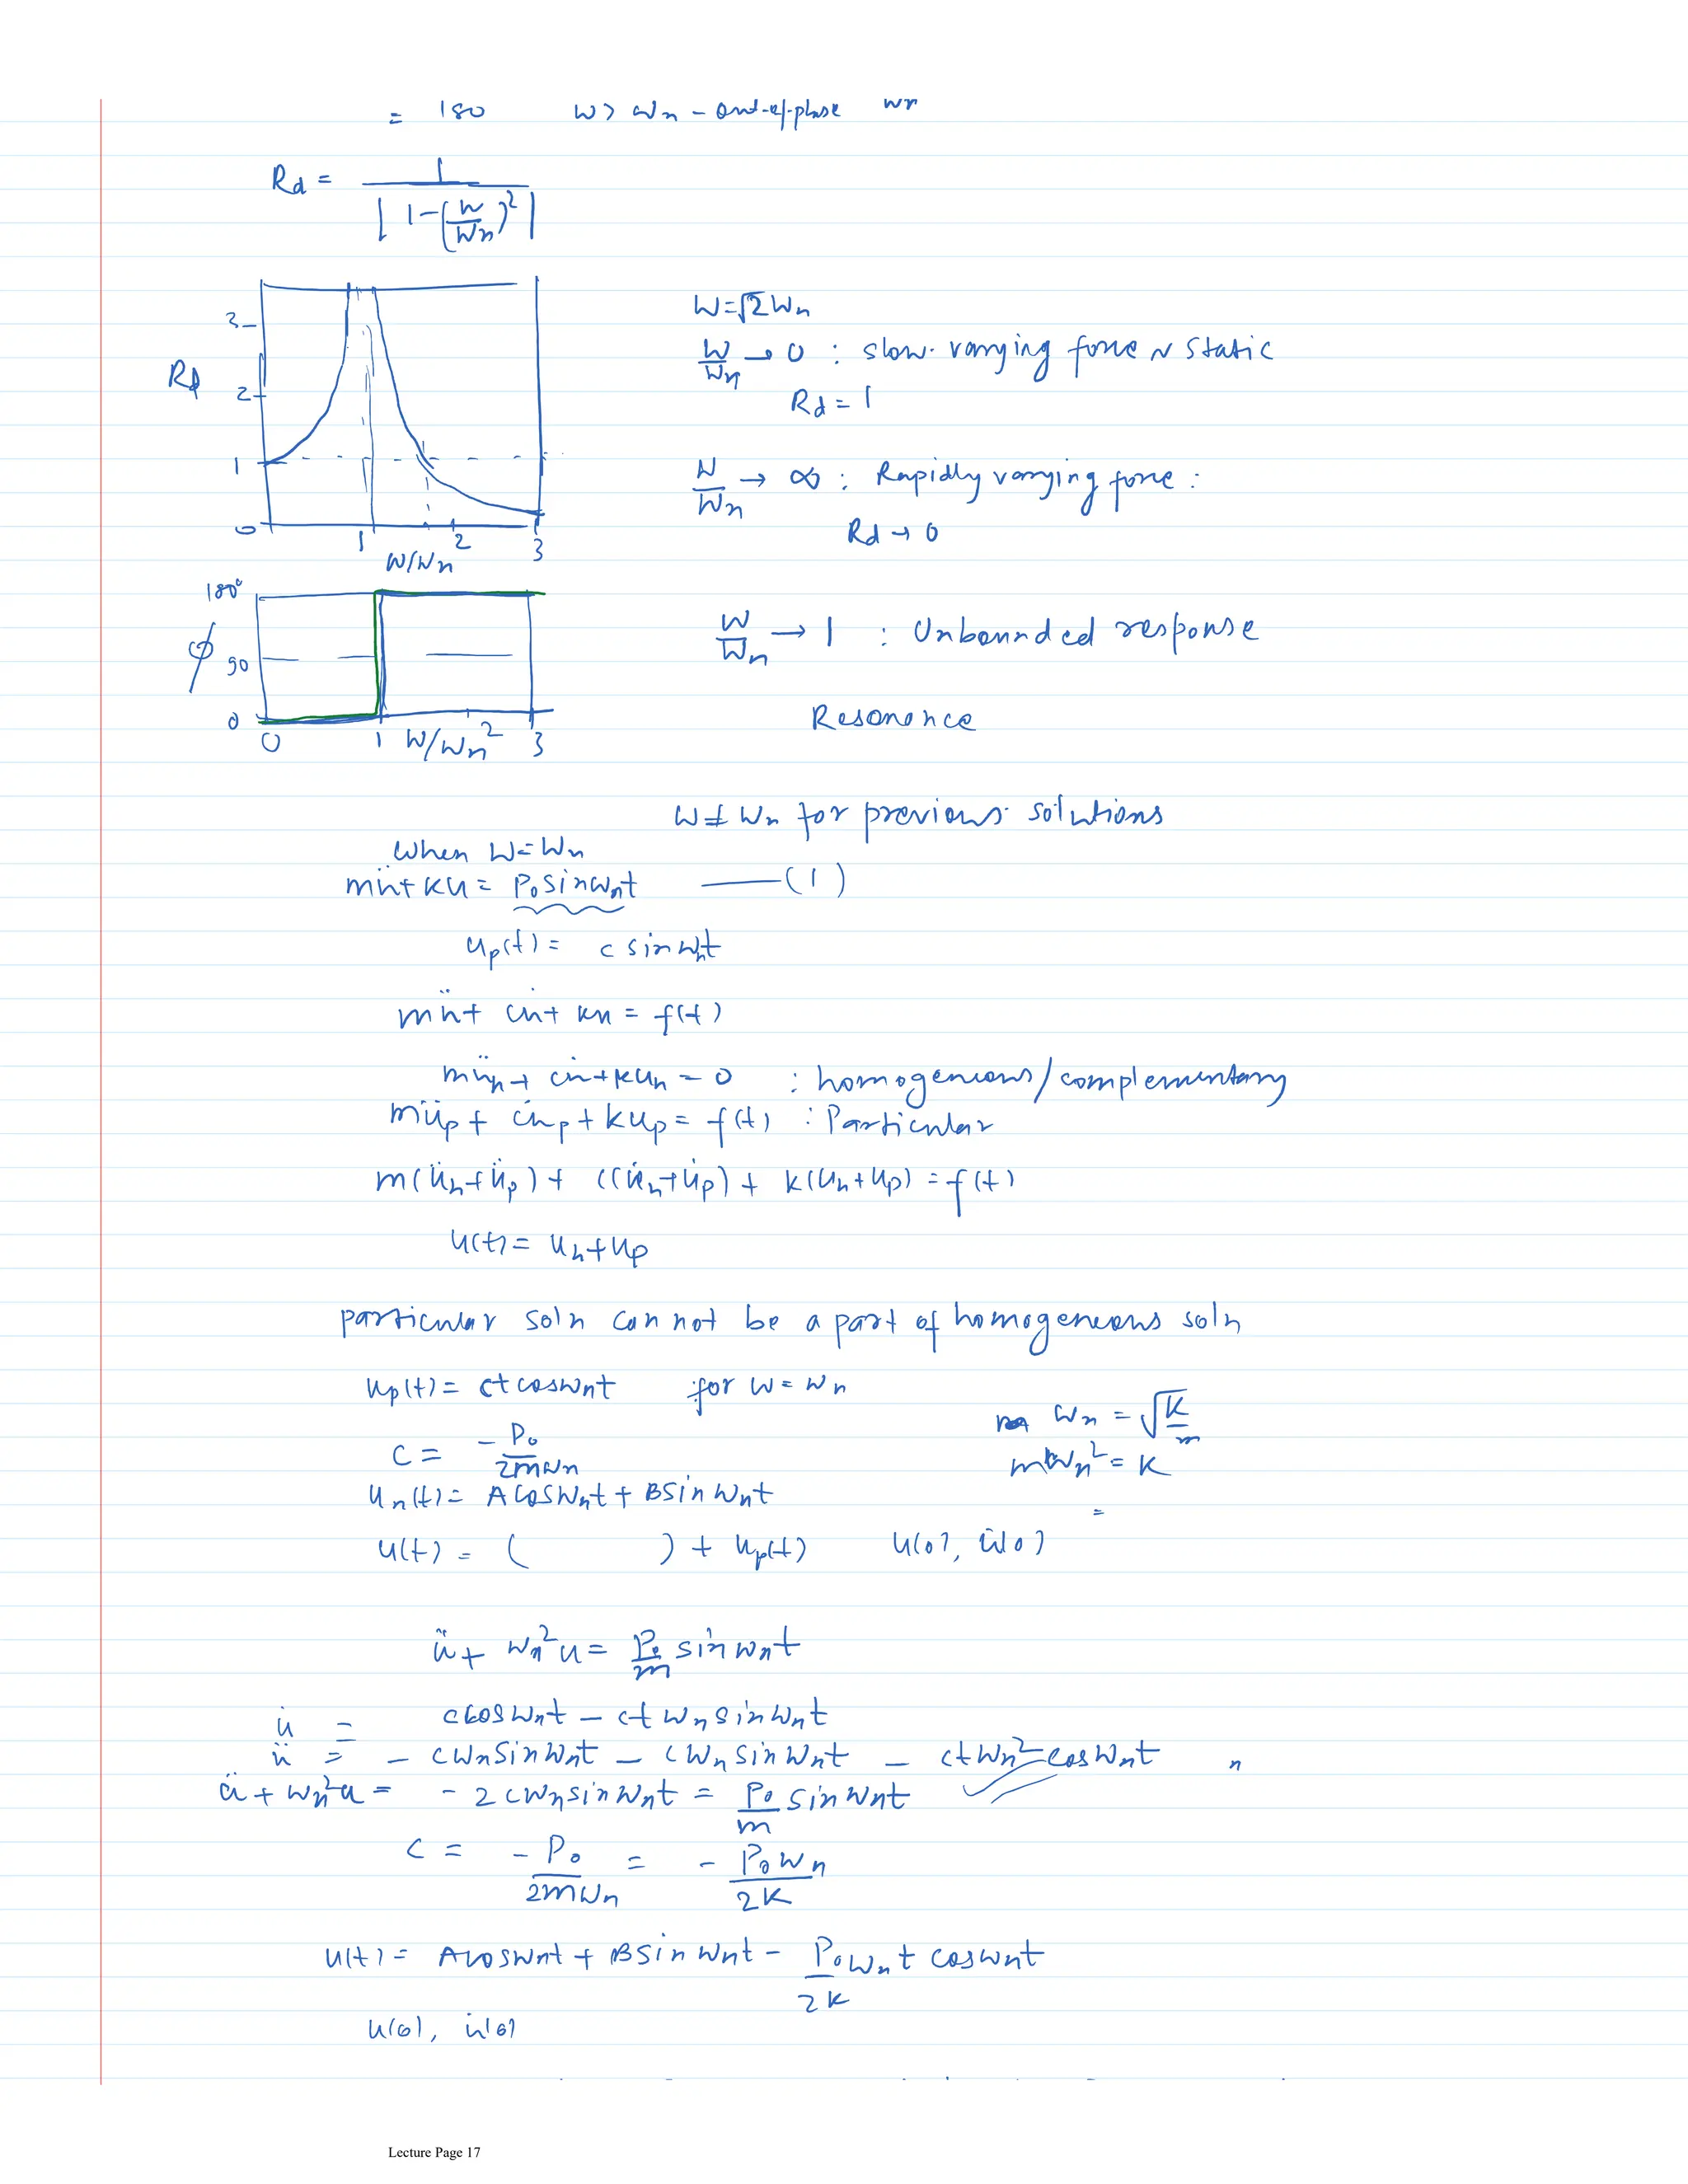 = 180 W > Wn - out-of-phase wr
Rd = 1 / | 1 - (W/Wn)² |
3
Rd
2
1
0
1 2 3
W/Wn
W = √2 Wn
W/Wn → 0 : slow varying force ~ static
Rd = 1
W/Wn → ∞ : Rapidly varying force :
Rd → 0
180°
φ 90
0
0 1 W/Wn 2 3
W/Wn → 1 : Unbounded response
Resonance
W ≠ Wn for previous solutions
When W = Wn
mü + ku = P₀ sin Wnt —— (1)
up(t) = c sin Wnt
mü + cu̇ + ku = f(t)
müh + cu̇ + kuh = 0 : homogeneous/complementary
müp + cu̇p + kup = f(t) : Particular
m(üh + üp) + c(u̇h + u̇p) + k(uh + up) = f(t)
u(t) = uh + up
particular soln can not be a part of homogeneous soln
up(t) = ct cos Wnt for W = Wn
Wn = √(K/m)
C = -P₀ / 2mWn
mWn² = K
un(t) = A cos Wnt + B sin Wnt
=
u(t) = ( ) + up(t) u(0), u̇(0)
ü + Wn²u = P₀/m sin Wnt
u̇ = c cos Wnt - ct Wn sin Wnt
ü = - cWn sin Wnt - cWn sin Wnt - ct Wn² cos Wnt n
ü + Wn²u = - 2cWn sin Wnt = P₀/m sin Wnt
C = -P₀ / 2mWn = - P₀Wn / 2K
u(t) = A cos Wnt + B sin Wnt - P₀/2K Wn t cos Wnt
u(0), u̇(0)
Lecture Page 17